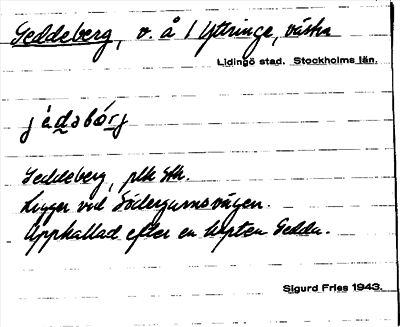 Geddeberg, v. å 1 Yttringe, västra
Lidingö stad. Stockholms län.
Geddeberg,
Ligger vid Södergarnsvägen.
Upphallad efter en kapten Gedda.
Sigurd Fries 1943.